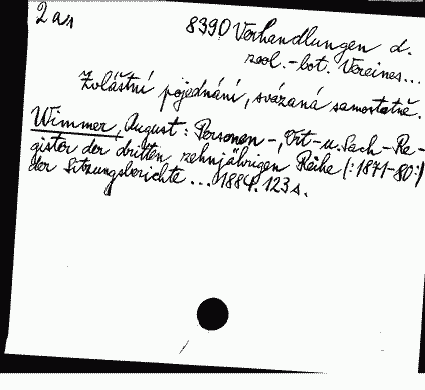 2 a/1
8390 Verhandlungen d.
zool.-bot. Vereines...
Zvláštní pojednání, svázaná samostatně.
Wimmer, August: Personen-, Ort- u. Sach-Re-
gister der dritten zehnjährigen Reihe (:1871-80:)
der Sitzungsberichte ... 1884. 123 s.